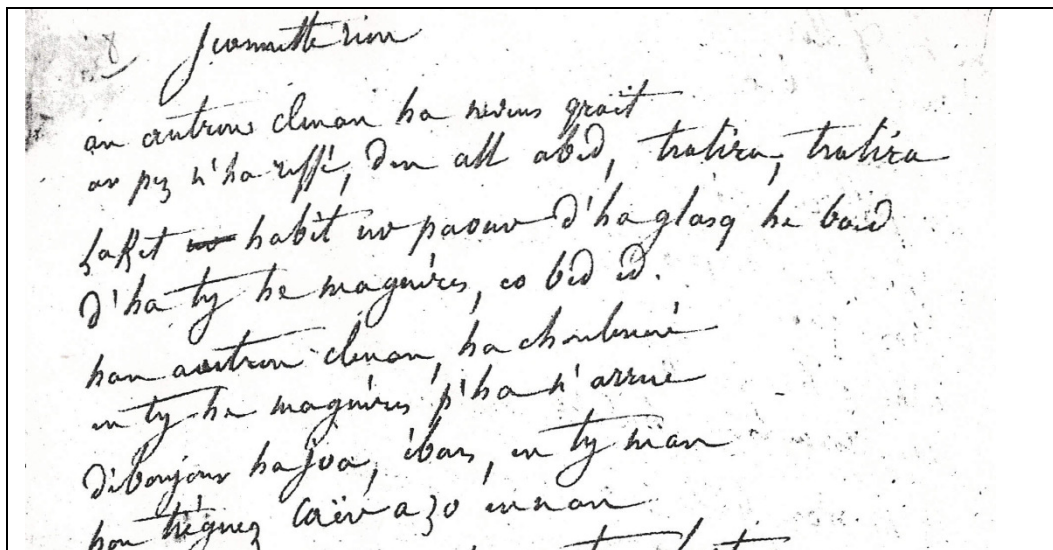 8 Jeannette rion
an autrou clunan ha neveus graët
ar pez n'ha reffé, den all abéd, tralira, tralira
laket habit ur paour d'ha glasq he boed
d'ha ty he maguéres, eo bed ed.
han autrou clunan, ha choulenné
en ty he maguéres p'ha n'arrue
dibonjour ha joa, ébars, en ty man
hon trégnez caër a zo enan